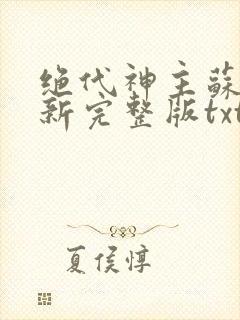 绝代神主蘇
新完整版txt
夏侯惇